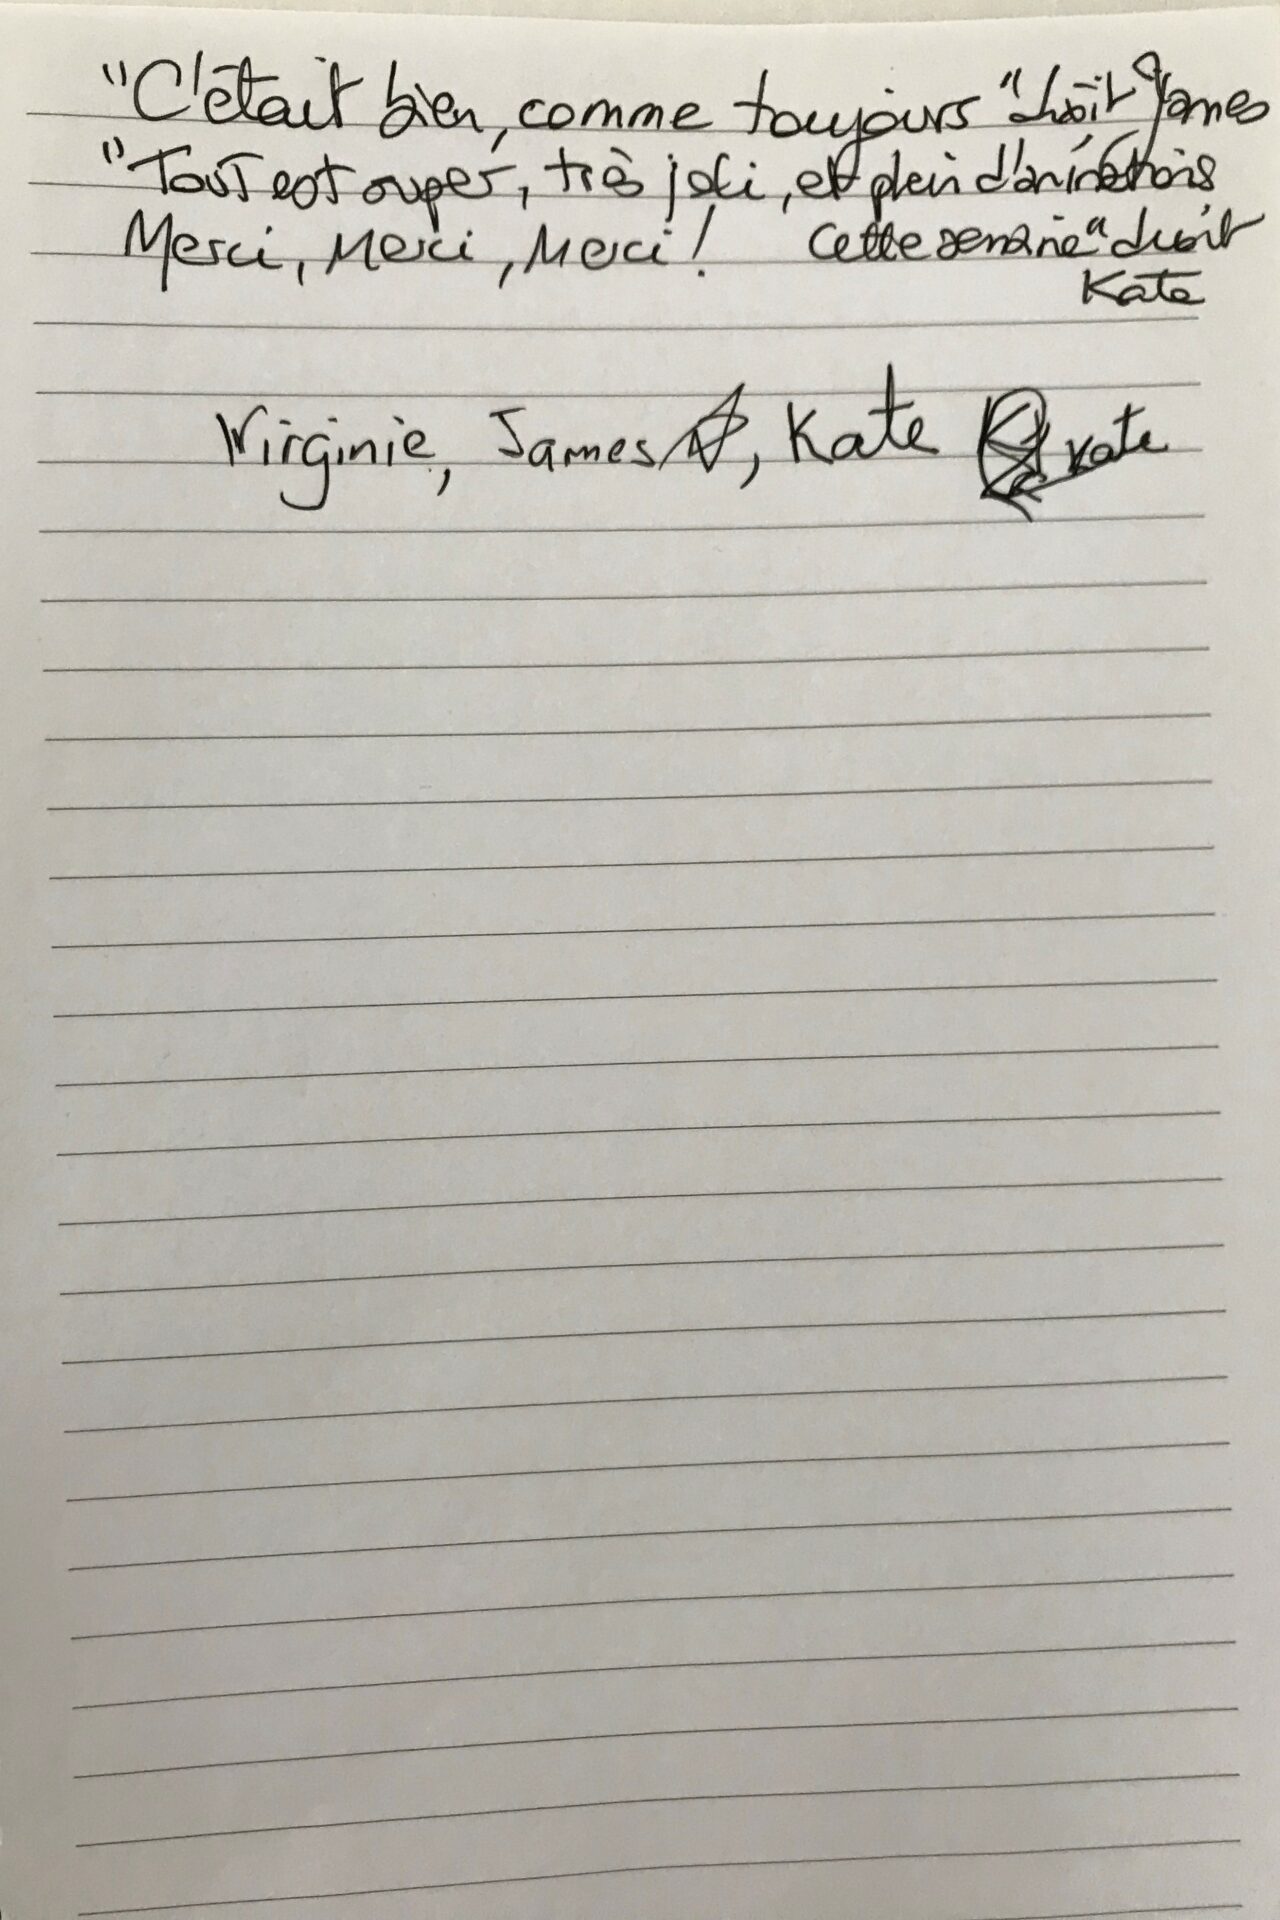 "C'était bien, comme toujours" dixit James
"Tout est super, très joli, et plein d'animations
Merci, Merci, Merci! cette semaine" dixit
Kate
Virginie, James, Kate Kate